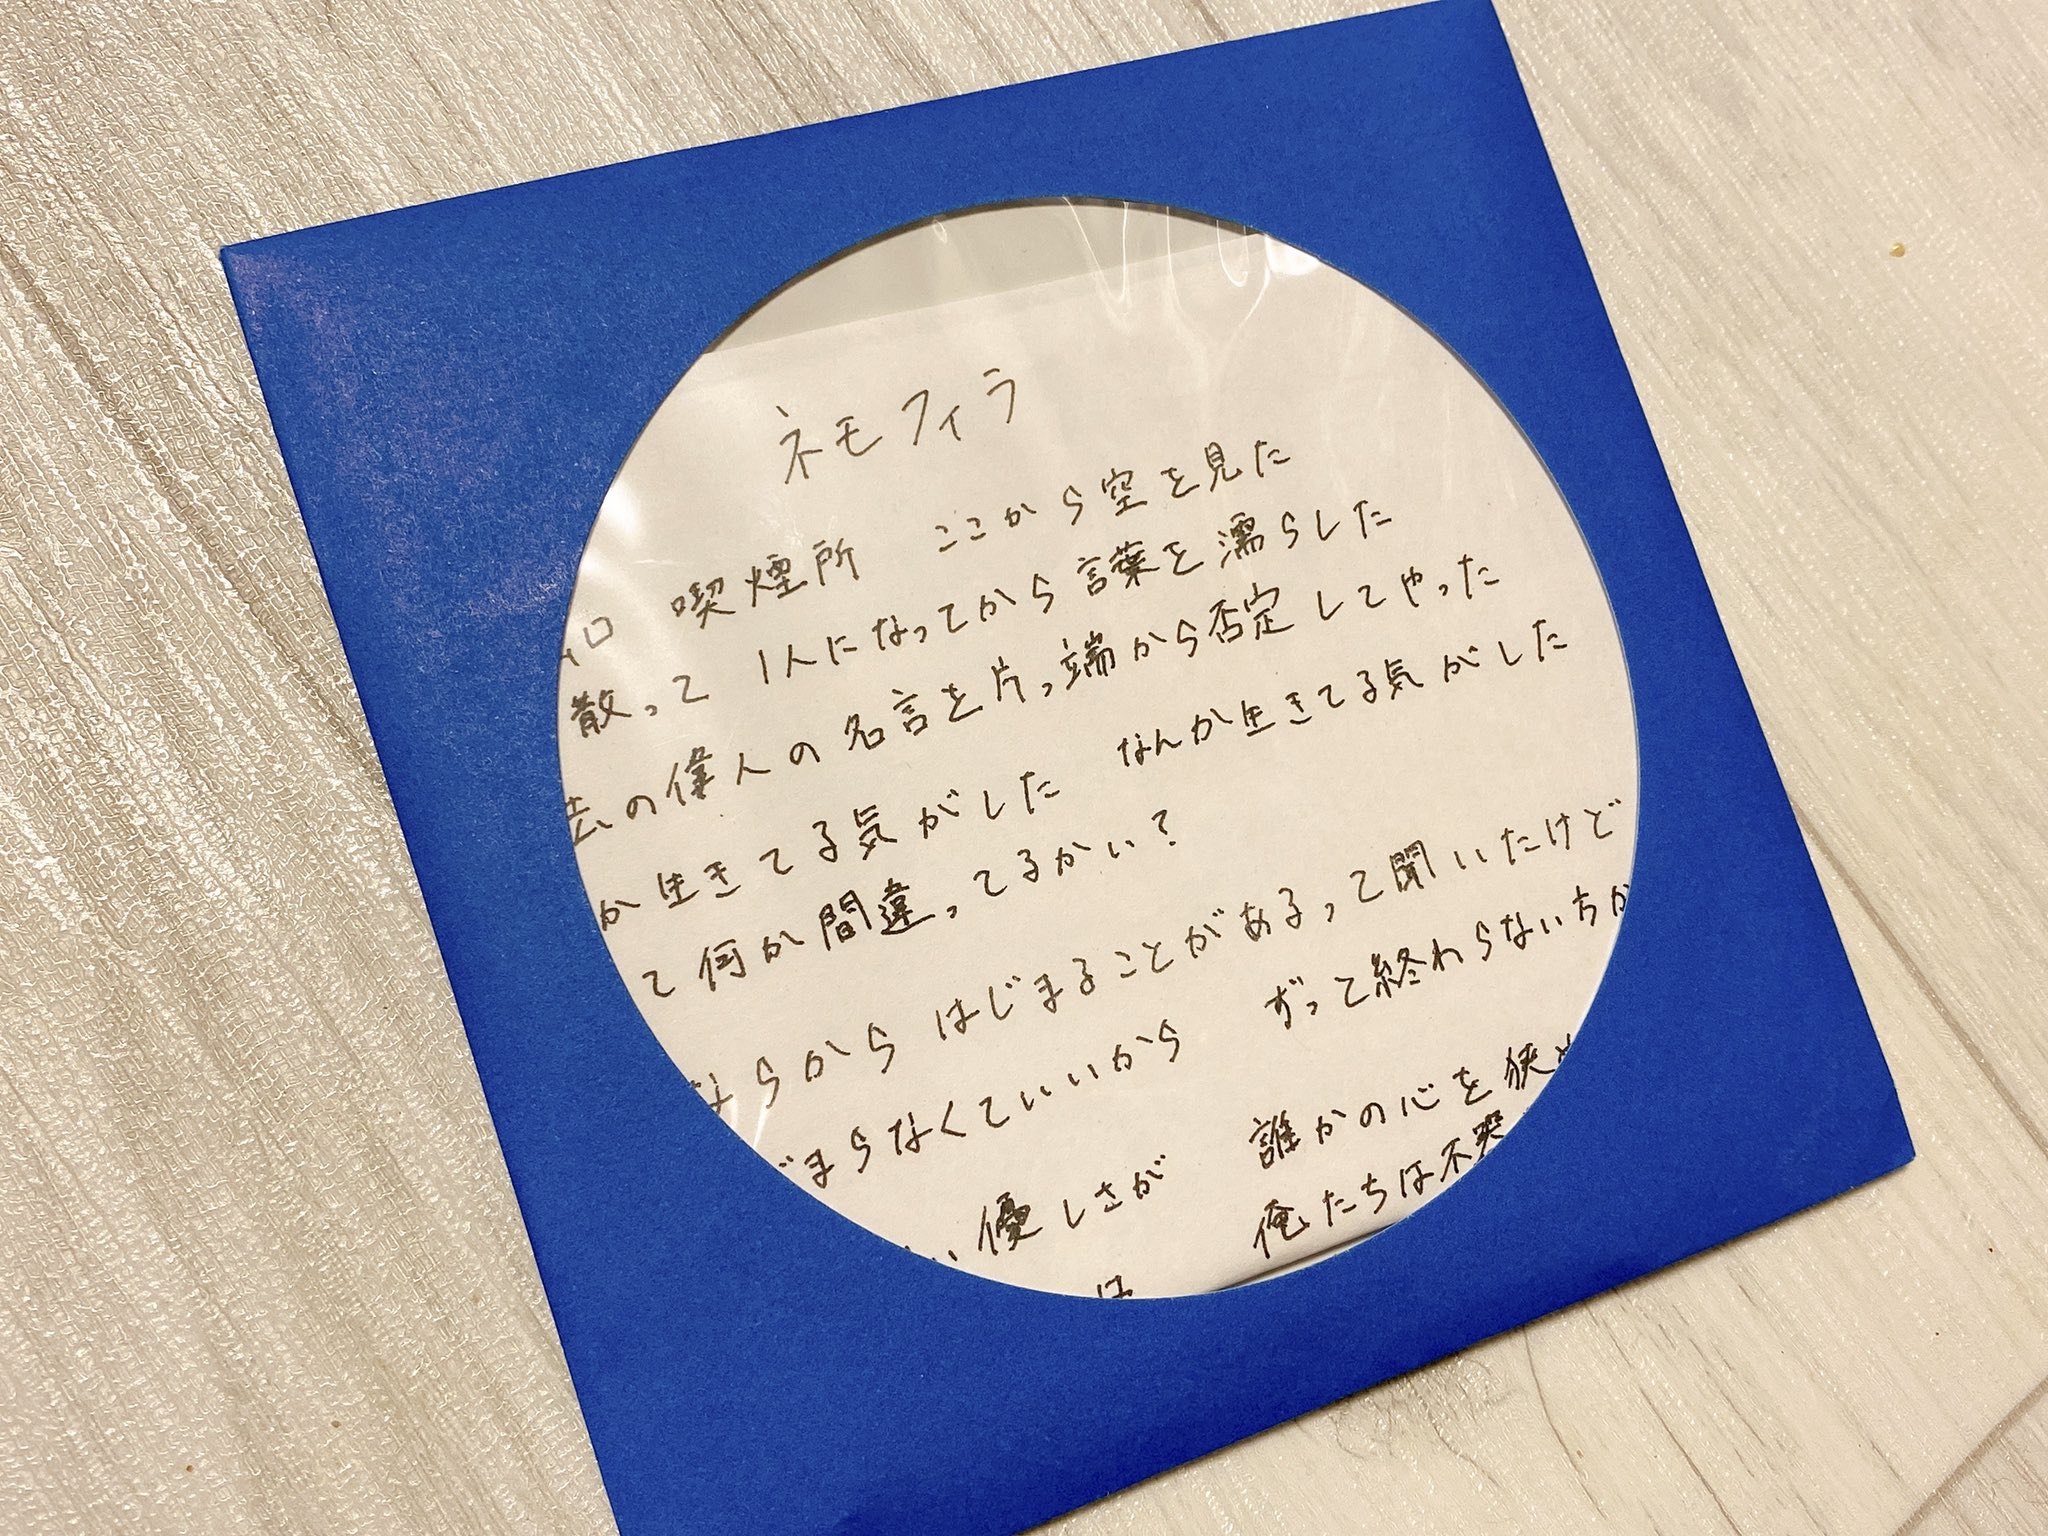 ネモフィラ
口 喫煙所 ここから空を見た
散って 1人になってから言葉を濡らした
去の偉人の名言を片っ端から否定してやった
か生きてる気がした なんか生きてる気がした
て何か間違ってるかい?
ならからはじまることがあるって聞いたけど
じまらなくていいから ずっと終わらない方が
い優しさが 誰かの心を狭め
は 俺たちは不